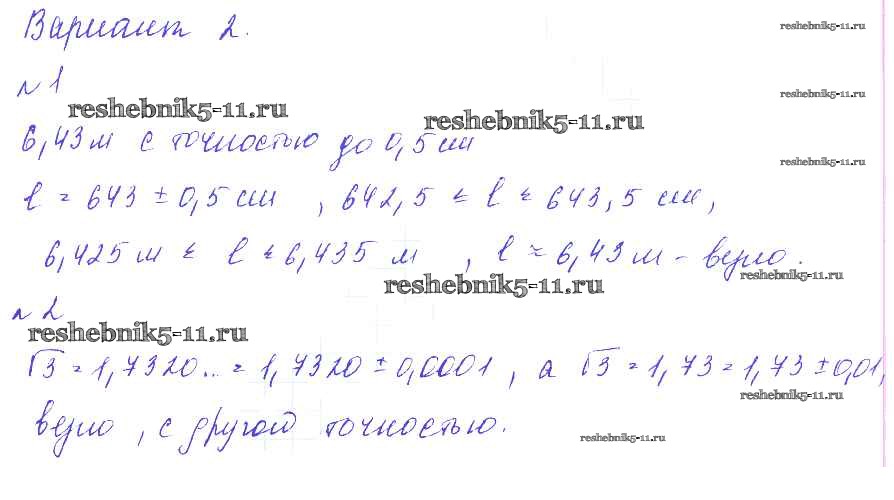 Вариант 2.
reshebnik5-11.ru
№1
reshebnik5-11.ru
reshebnik5-11.ru
reshebnik5-11.ru
6,43 м с точностью до 0,5 см
reshebnik5-11.ru
l = 643 ± 0,5 см , 642,5 ≤ l ≤ 643,5 см,
6,425 м ≤ l ≤ 6,435 м , l ≈ 6,43 м - верно.
reshebnik5-11.ru
reshebnik5-11.ru
№2
reshebnik5-11.ru
√3 = 1,7320... = 1,7320 ± 0,0001 , а √3 = 1,73 = 1,73 ± 0,01,
reshebnik5-11.ru
верно , с другой точностью.
reshebnik5-11.ru